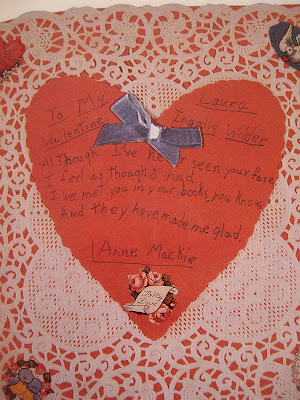 To My Laura
Valentine Ingalls Wilder
Although I've never seen your face,
I feel as though I had,
I've met you in your books, you know,
And they have made me glad.
Anne Mackie